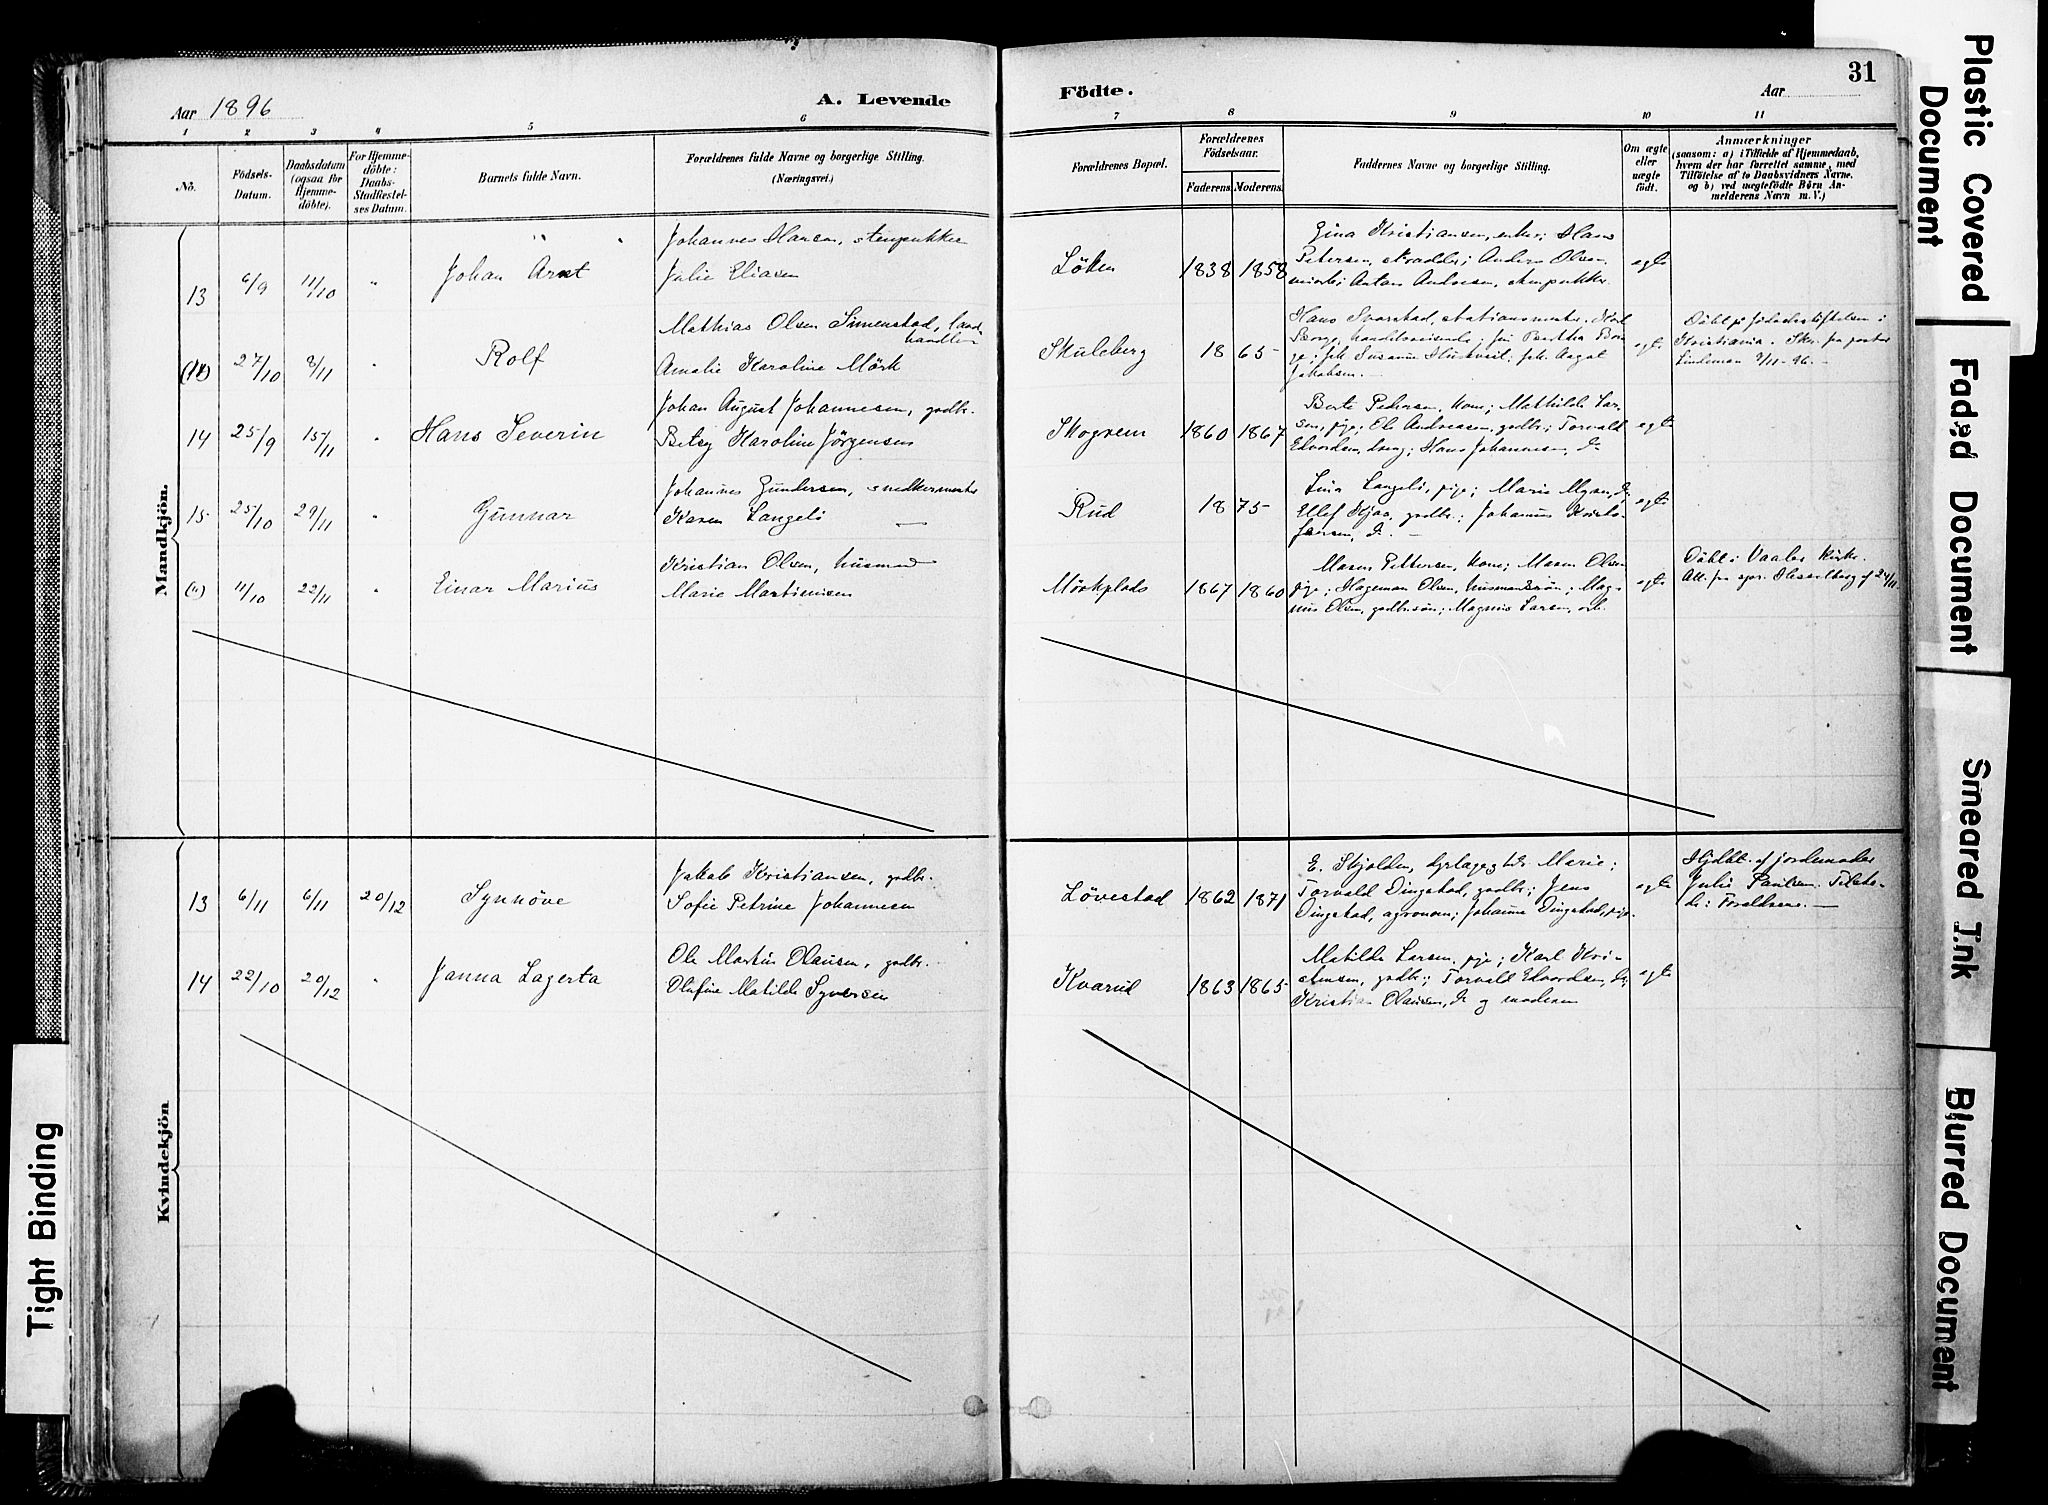 31
Aar 1896
A. Levende
Födte.
Aar
1 2 3 4 5 6 7 8 9 10 11
No.
Födsels-Datum.
Daabsdatum (ogsaa for Hjemme-döbte).
For Hjemme-döbte: Daabs-Stadfæstelses Datum.
Barnets fulde Navn.
Forældrenes fulde Navne og borgerlige Stilling. (Næringsvei.)
Forældrenes Bopæl.
Forældrenes Födselsaar.
Faderens. Moderens.
Faddernes Navne og borgerlige Stilling.
Om ægte eller uægte födt.
Anmærkninger
(saasom: a) i Tilfælde af Hjemmedaab, hvem der har forrettet samme, med Tilföielse af to Daabsvidners Navne, og b) ved uægtefödte Börn Anmelderens Navn m. V.)
Mandkjön.
13 6/9 11/10 " Johan Arnt
Johannes Hansen, stenpukker
Julie Eliasen
Löken 1838 1858
Gina Kristiansen, enke; Hans
Petersen, skrædder; Anders Olsen,
Anton Andresen, stenpukker.
egte
27/10 8/11 " Rolf
Mathias Olsen Simenstad, landhandler
Amalie Karoline Mörk
Skuleberg 1865
Hans Svarstad, stationsmester,
Borge, handelsreisende; fru Bertha Borge;
frk. Aagot
Jakobsen.
egte
Döbt på födselsstiftelsen i
Kristiania. Skr. fra pastor
Lindeman 9/11-96.
14 25/9 15/11 " Hans Severin
Johan August Johannesen, gadbr.
Betsy Karoline Jörgensen
Skogrem 1860 1867
Berte Petersen, kone; Mathilde Larsen, pige; Ole Andreassen, gadbr.; Torvald
Edvardsen, dreng; Hans Johannesen, do
egte
15 25/10 29/11 " Gunnar
Johannes Gundersen, snedkermester
Karen Langeli
Rud 1875
Lina Langeli, pige; Marie Mysen, do;
Ellef Skjaa, gadbr.; Johannes Kristofersen, do.
egte
11/10 22/11 " Einar Marius
Kristian Olsen, husmand
Marie Martinisen
Mörkplads 1867 1860
Maren Pettersen, kone; Maren Olsen
pige; Hageman Olsen, husmandssön; Magnus Olsen, gadbr.sön; Magnus Larsen, arb.
egte
Döbt i Vaaler kirke.
Att. fra spr. Hesselberg af 24/11.
Kvindekjön
13 6/11 6/11 20/12 Synnöve
Jakob Kristiansen, gadbr.
Sofie Petrine Johannesen
Lövestad 1862 1871
E. Skjolden, dyrlæge &
Marie;
Torvald Dingstad, gadbr.; Jens
Dingstad, agronom; Johanne Dingstad, pige.
egte
Hjdbt. af jordemoder
Julie Paulsen. Tilstede: Forældrene.
14 22/10 20/12 " Janna Lagerta
Ole Martin Olausen, gadbr.
Olufine Matilde Syversen
Kvarud 1863 1865
Matilde Larsen, pige; Karl Kristensen, gadbr.; Torvald Edvardsen, do;
Kristian Olausen, do og moderen
egte
Plastic Covered Document
Faded Document
Smeared Ink
Blurred Document
Tight Binding